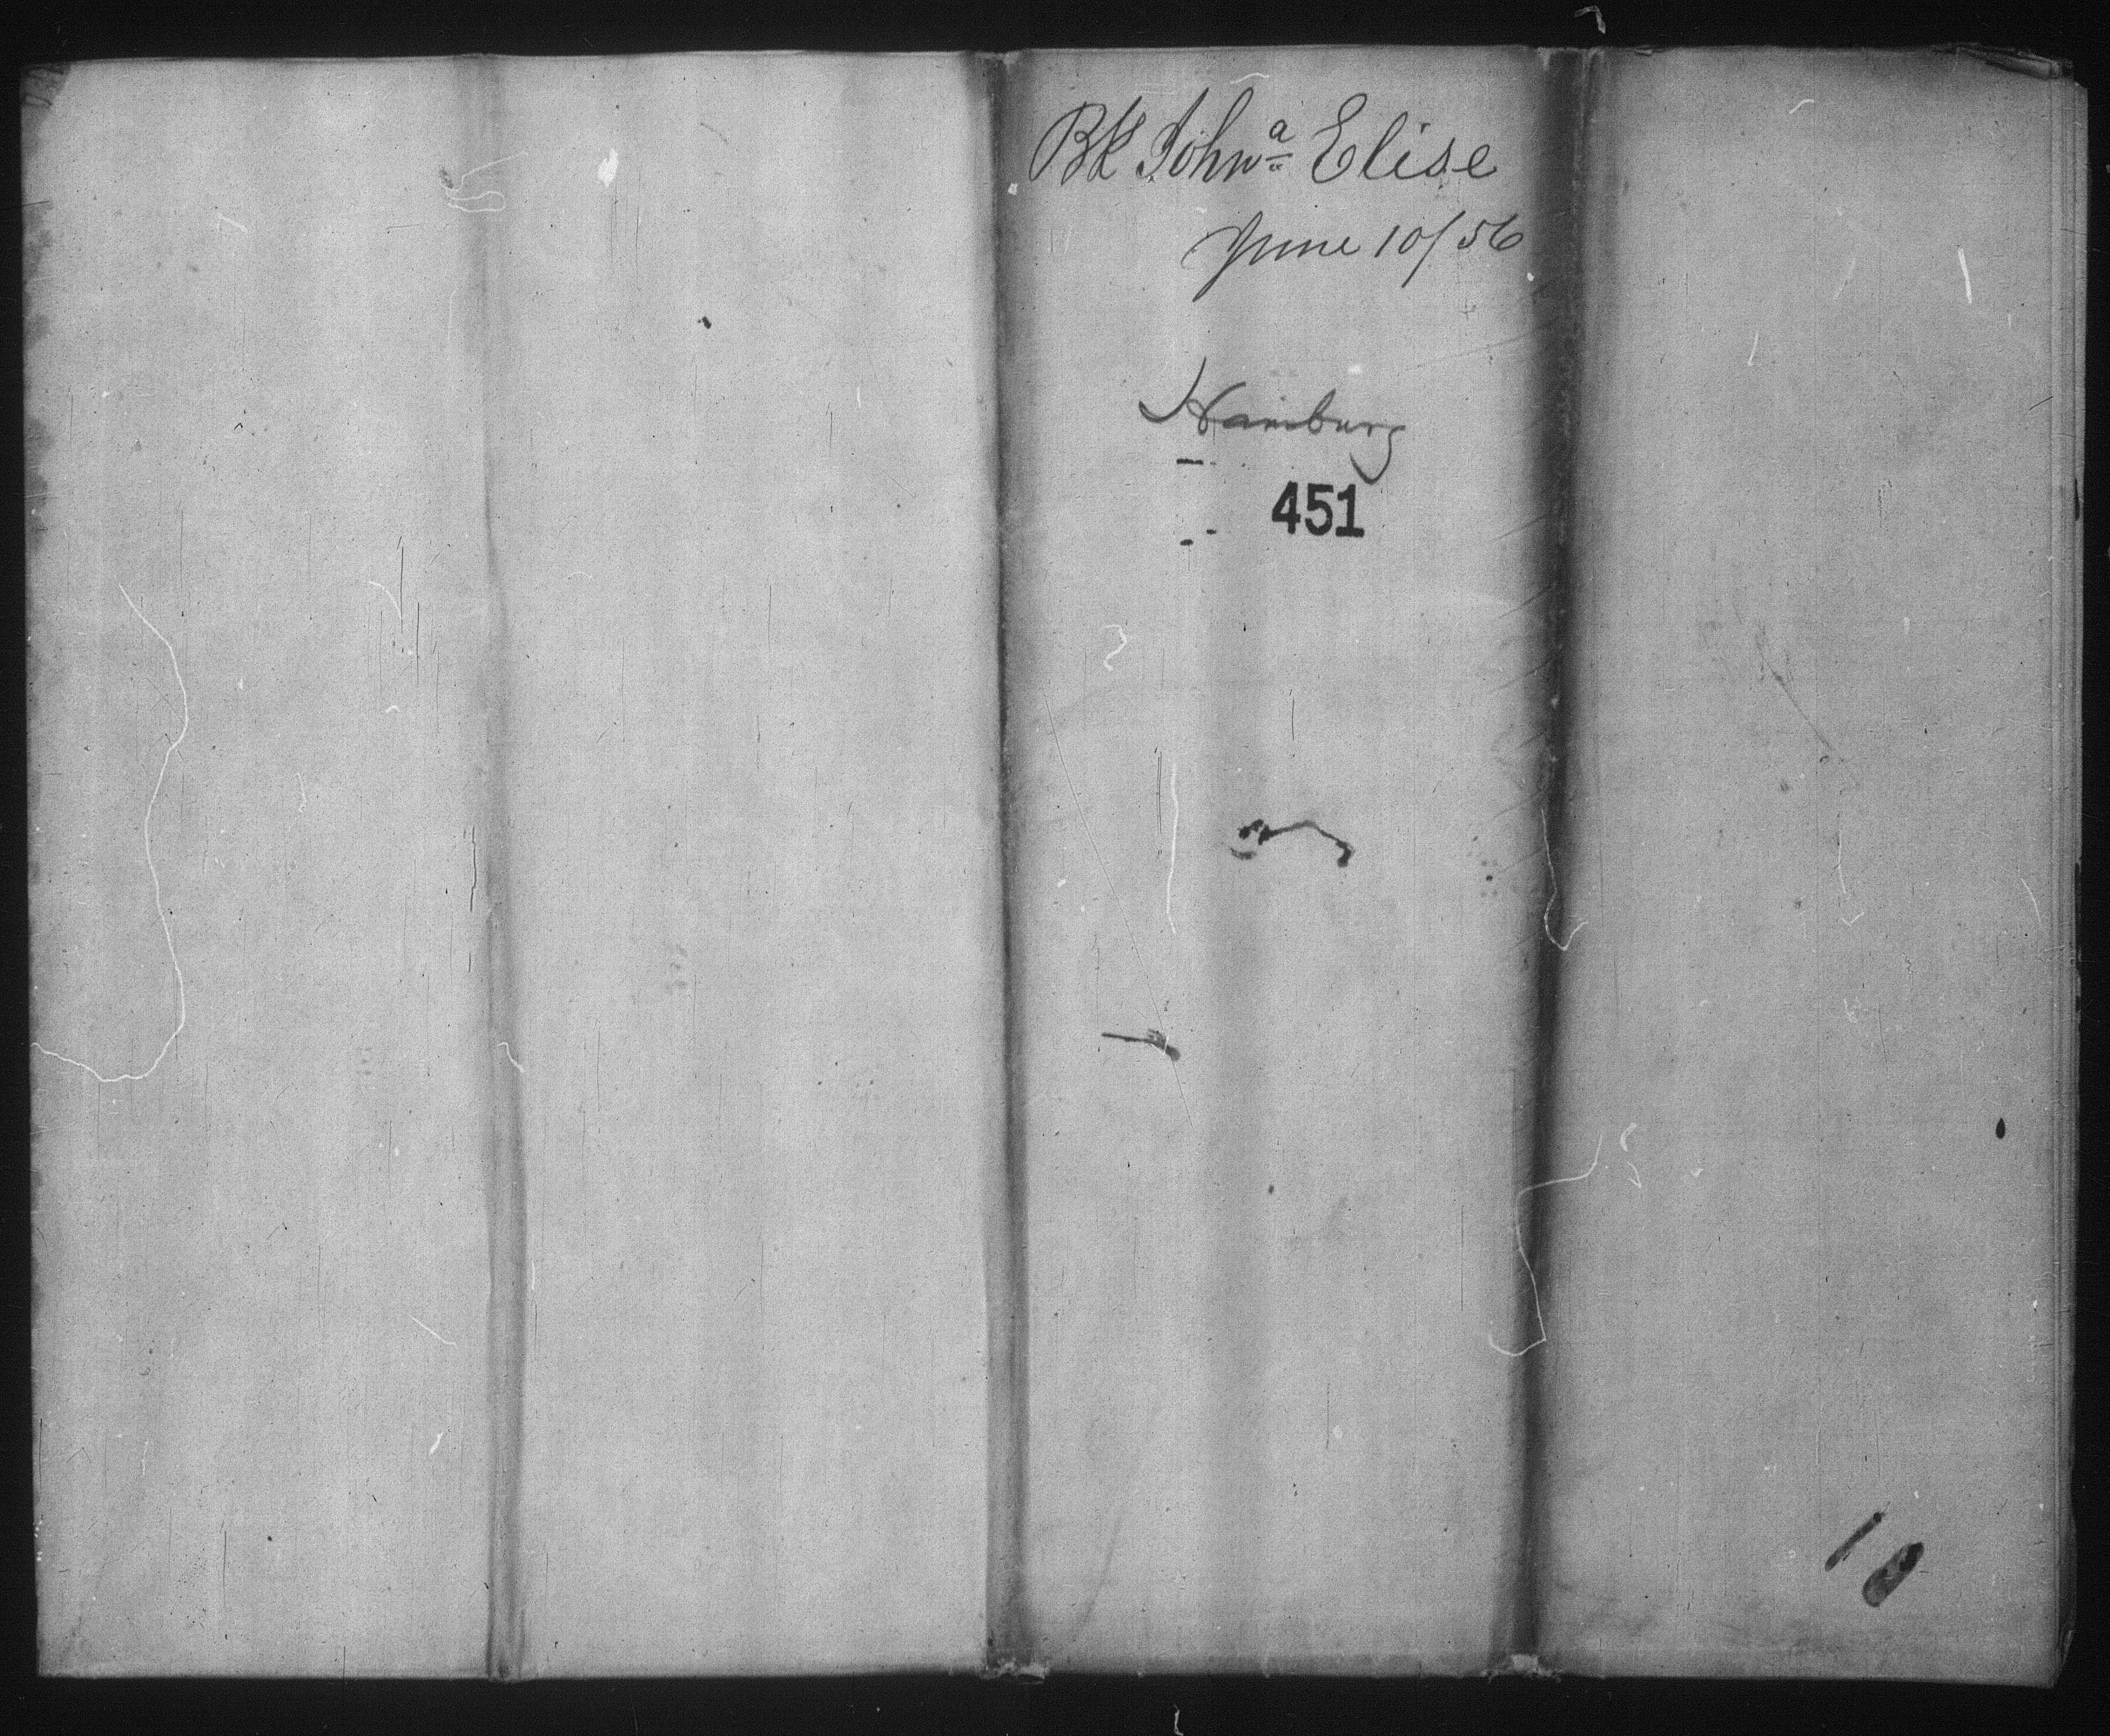 Bk Johnᵃ Elise
June 10/56
Hamburg
451
10